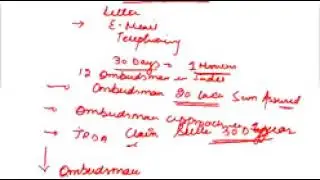 Letter
→ E-Mail
Telephoning
30 Days = 1
12 Ombudsman in India
Ombudsman 20 Lacs Sum Assured
Ombudsman approach
Claim 30 Days
Ombudsman